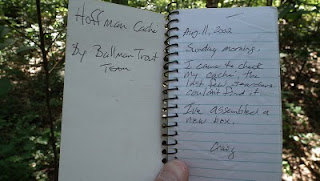 Hoffman Cache
By Bullman Trout
Team
Aug. 11, 2002
Sunday morning.
I came to check
my cache; the
last few searchers
couldn't find it.
I've assembled a
new box.
Craig